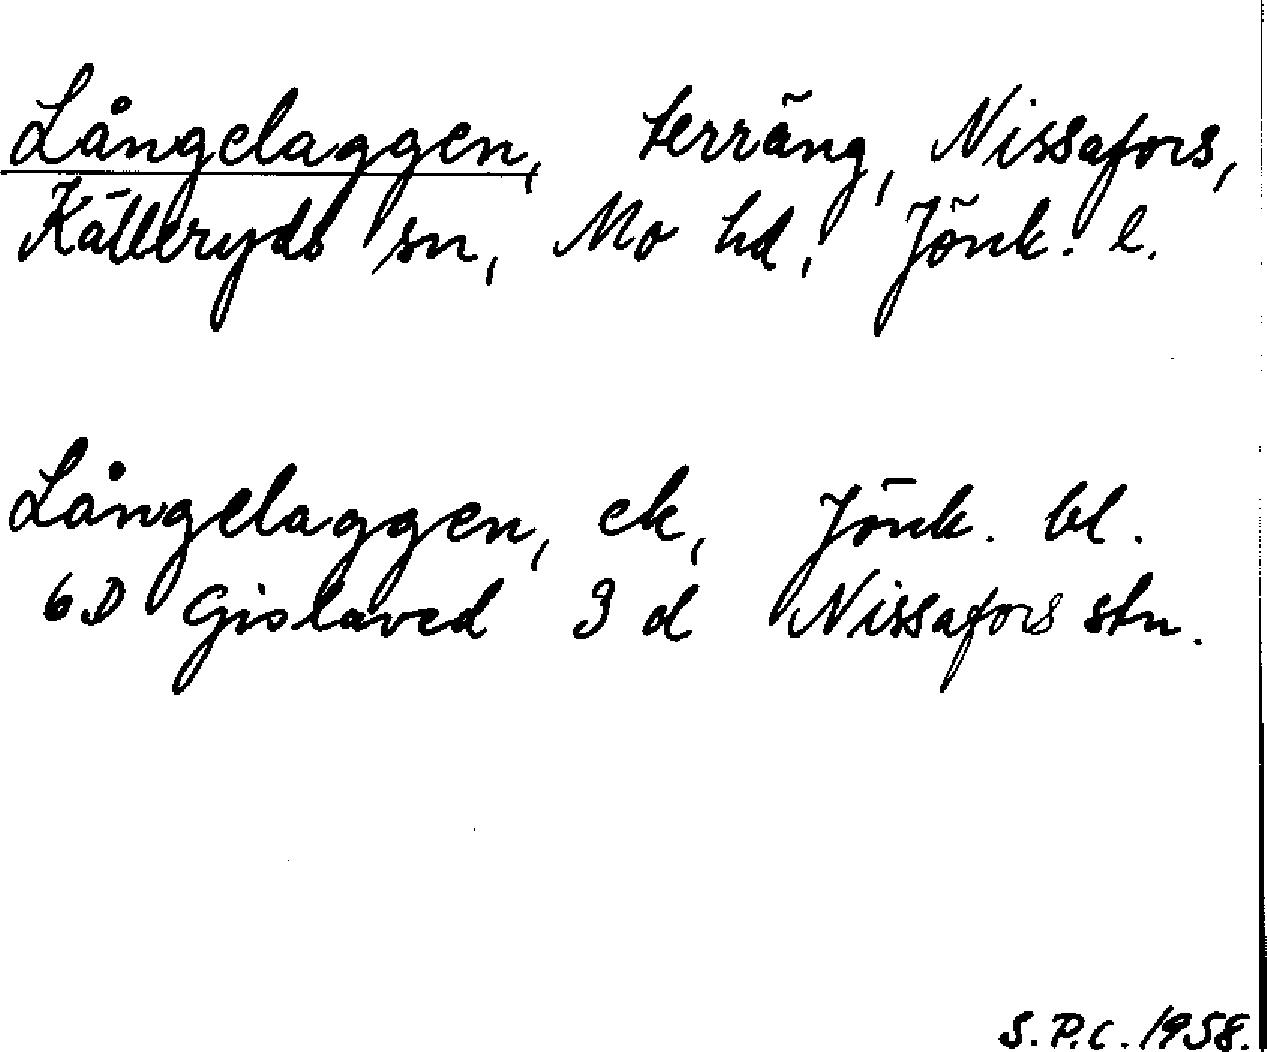 Långelaggen, terräng, Nissafors,
Källeryds sn, Mo hd, Jönk. l.
Långelaggen, ek, Jönk. bl.
6D Gislaved 3 d Nissafors stn.
S.P.C. 1958.